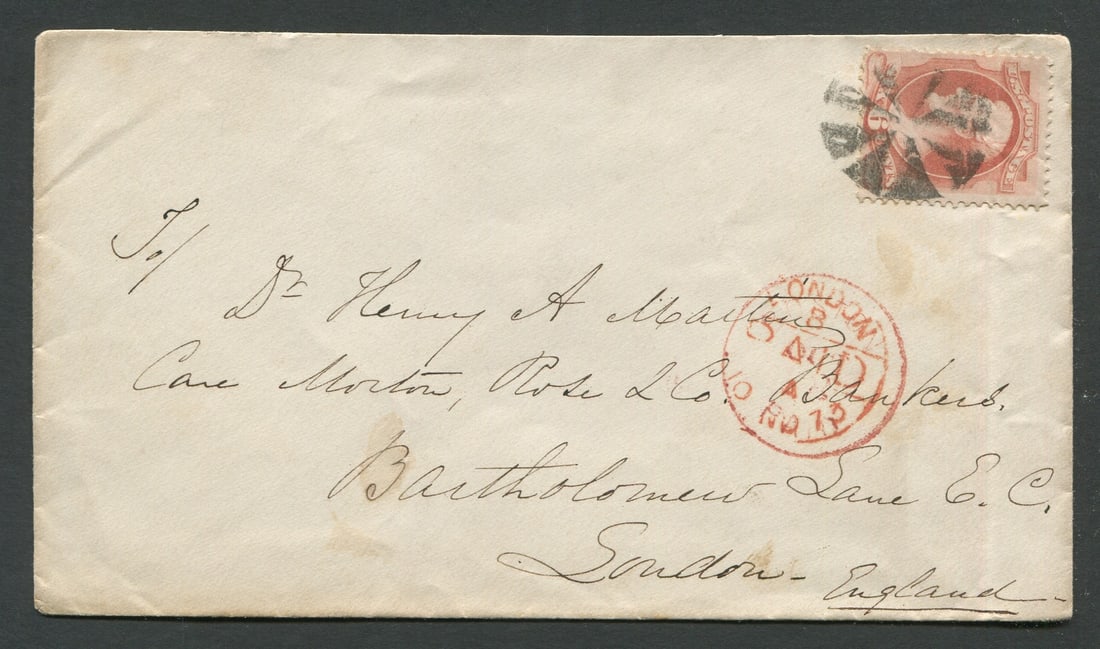 U.S. POSTAGE
6
To/
Dr Henry A Martin
Care Morton, Rose & Co. Bankers.
Bartholomew Lane E. C.
London - England
LONDON
B
PAID
10
73